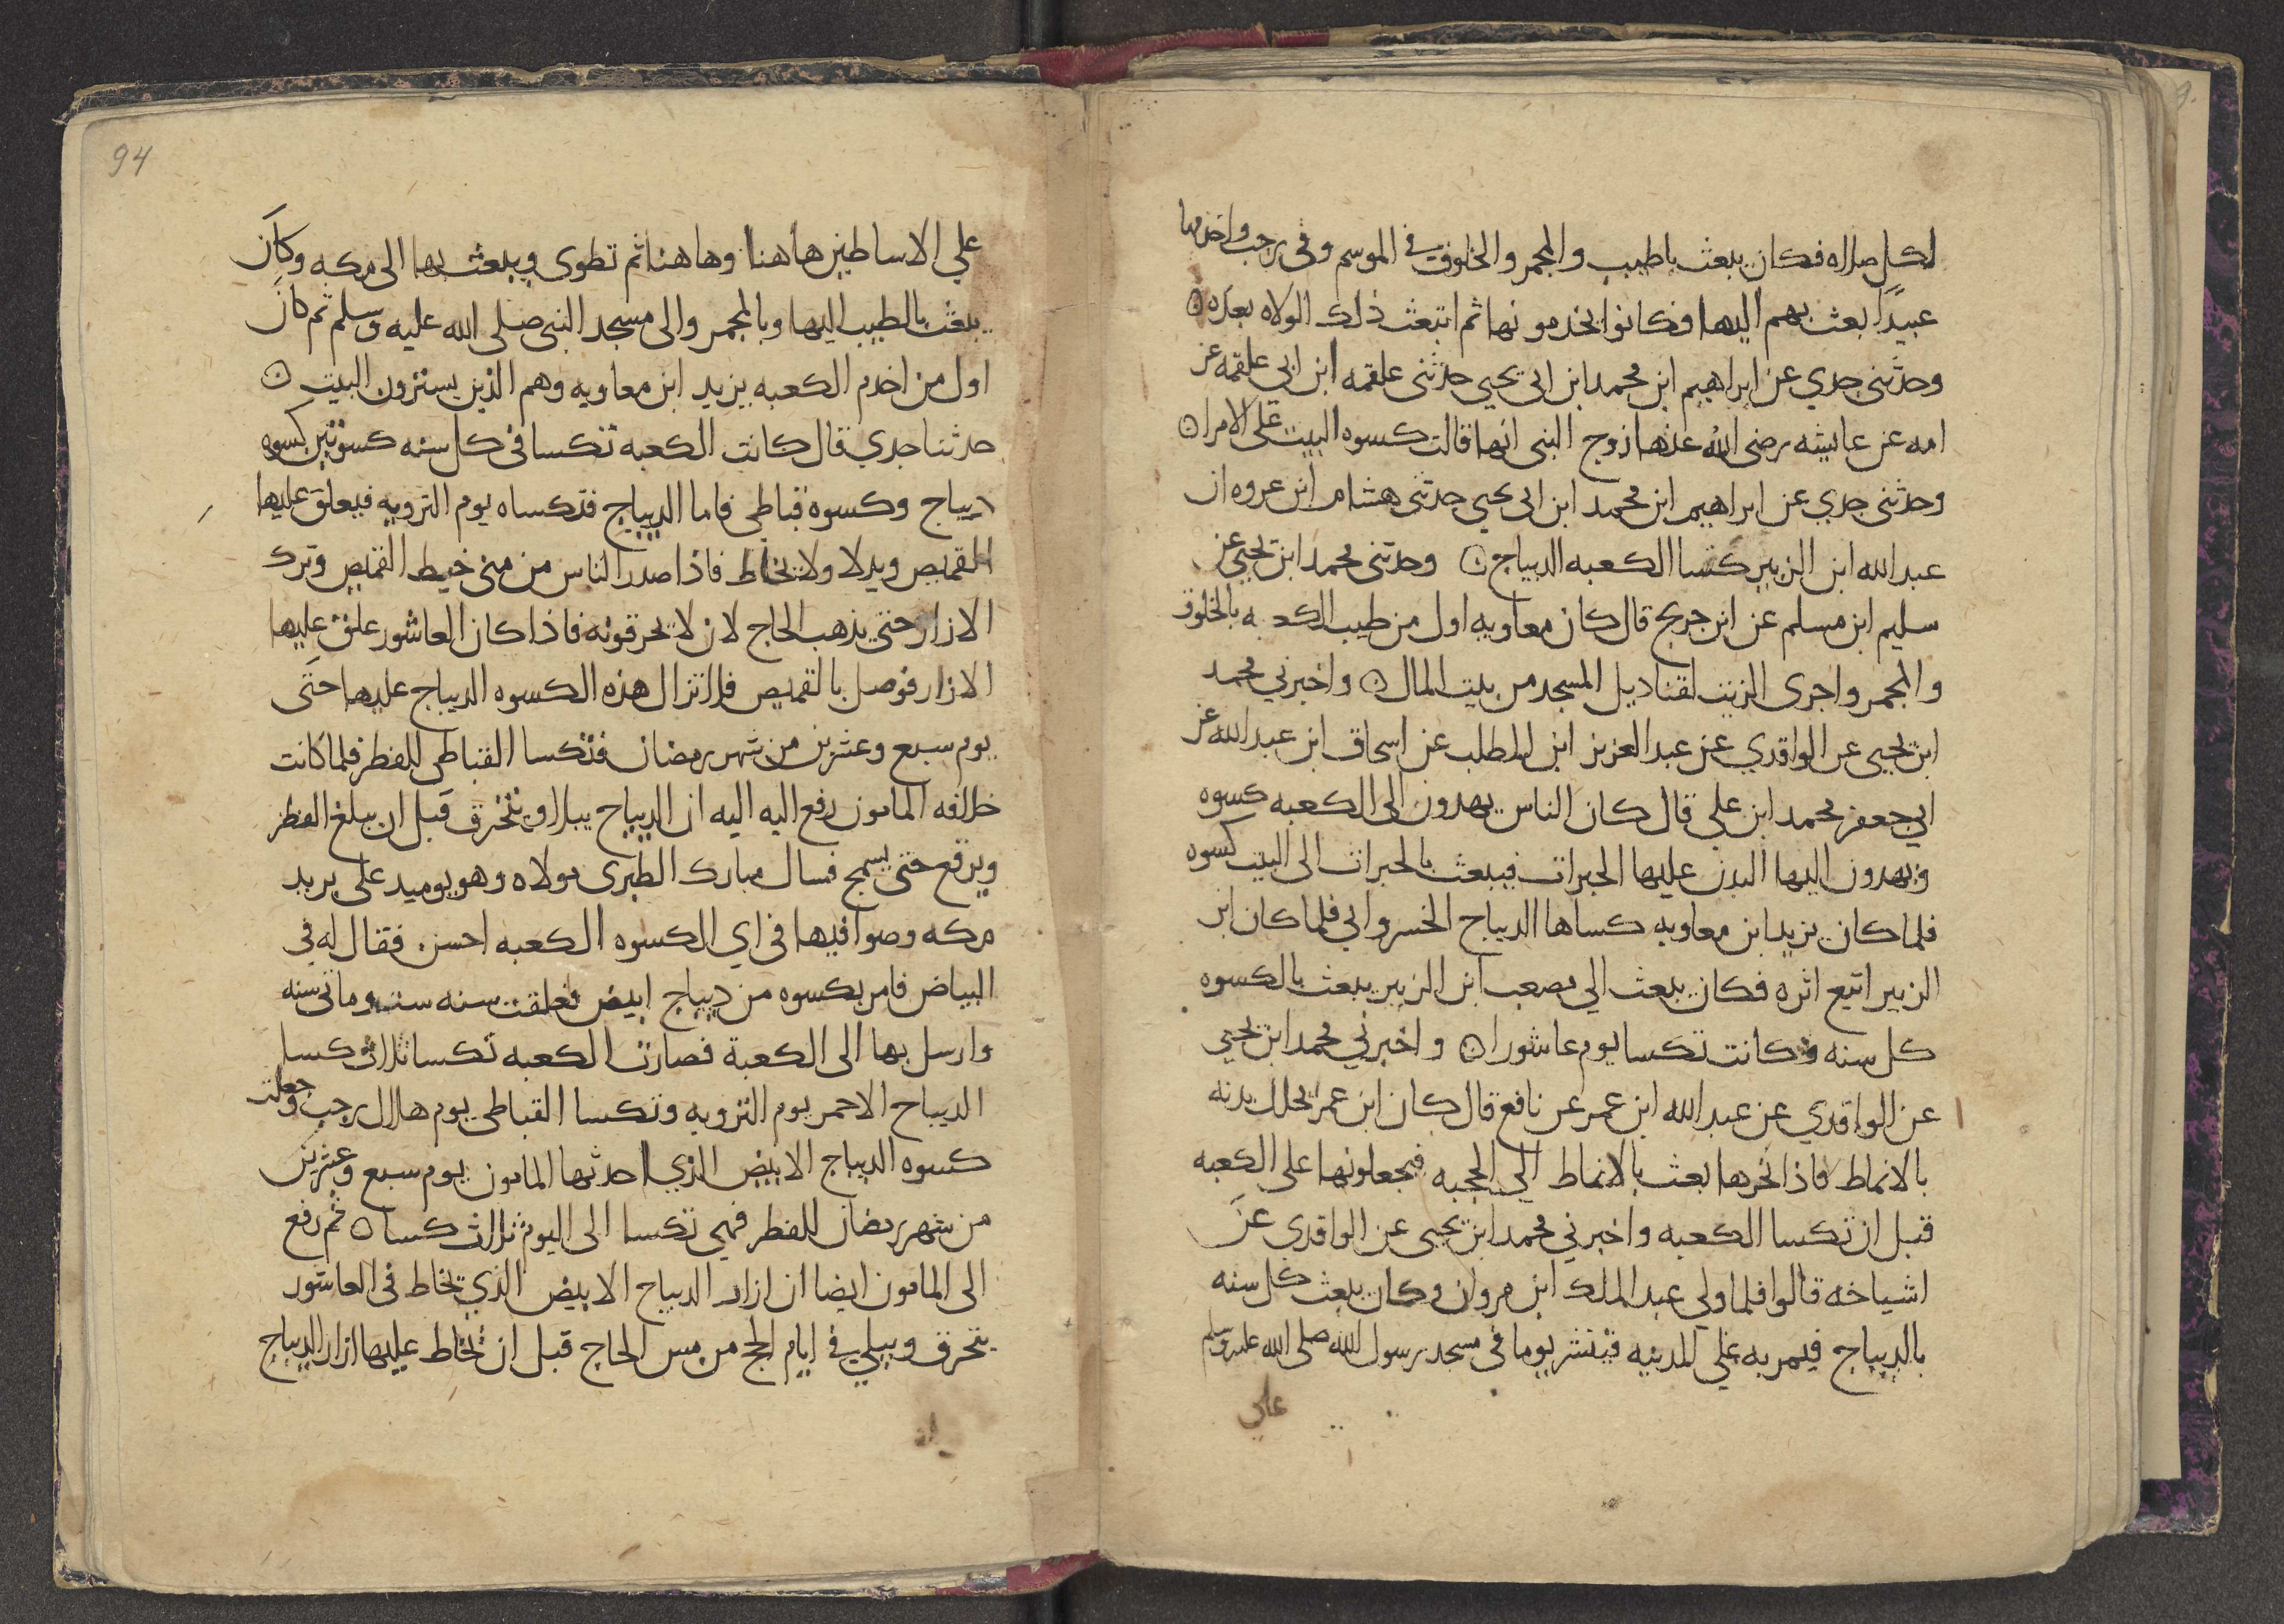 لكل صلاه فكان يبعث باطيب والمجمر والخلوق في الموسم وفي رجب واخدمها
عبيدًا بعث بهم اليها فكانوا يخدمونها ثم اتبعث ذلك الولاه بعده ۞
وحدثني جدي عن ابراهيم ابن محمد ابن ابي يحيي حدثني علقمه ابن ابي علقمه عن
امه عن عايشه رضي الله عنها زوج النبي انها قالت كسوه البيت على الامرا ۞
وحدثني جدي عن ابراهيم ابن محمد ابن ابي يحيي حدثني هشام ابن عروه ان
عبد الله ابن الزبير كسا الكعبه الديباج ۞ وحدثني محمد ابن يحيي عن
سليم ابن مسلم عن ابن جريج قال كان معاويه اول من طيب الكعبه بالخلوق
والمجمر واجرى الزيت لقناديل المسجد من بيت المال ۞ واخبرني محمد
ابن يحيي عن الواقدي عن عبد العزيز ابن المطلب عن اسحاق ابن عبد الله عن
ابي جعفر محمد ابن علي قال كان الناس يهدون الى الكعبه كسوه
ويهدون اليها البدن عليها الحبرات فيبعث بالحبرات الى البيت كسوه
فلما كان يزيد ابن معاويه كساها الديباج الخسرواني فلما كان ابن
الزبير اتبع اثره فكان يبعث الي مصعب ابن الزبير يبعث بالكسوه
كل سنه وكانت تكسا يوم عاشورا ۞ واخبرني محمد ابن يحيي
عن الواقدي عن عبد الله ابن عمر عن نافع قال كان ابن عمر يجلل بدنه
بالانماط فاذا نحرها بعث بالانماط الي الحجبه فيجعلونها على الكعبه
قبل ان تكسا الكعبه واخبرني محمد ابن يحيي عن الواقدي عن
اشياخه قالوا فلما ولي عبد الملك ابن مروان وكان يبعث كل سنه
بالديباج فيمر به علي المدينه فينشر يوما في مسجد رسول الله صلى الله عليه وسلم
علي
94
علي الاساطين هاهنا وهاهنا ثم تطوى ويبعث بها الى مكه وكان
يبعث بالطيب اليها وبالمجمر والى مسجد النبي صلى الله عليه وسلم ثم كان
اول من اخدم الكعبه يزيد ابن معاويه وهم الذين يسترون البيت ۞
حدثنا جدي قال كانت الكعبه تكسا في كل سنه كسوتين كسوه
ديباج وكسوه قباطي فاما الديباج فتكساه يوم الترويه فيعلق عليها
القميص ويدلا ولا يخاط فاذا صدر الناس من منى خيط القميص وترك
الازار حتى يذهب الحاج لان لا يحرقونه فاذا كان العاشور علق عليها
الازار فوصل بالقميص فلا تزال هذه الكسوه الديباج عليها حتى
يوم سبع وعشرين من شهر رمضان فتكسا القباطي للفطر فلما كانت
خلافه المامون رفع اليه اليه ان الديباج يبلا ويتخرق قبل ان يبلغ الفطر
ويرقع حتى يسمج فسال مبارك الطبري مولاه وهو يوميذ على بريد
مكه وصوافيها في اي الكسوه الكعبه احسن . فقال له في
البياض فامر بكسوه من ديباج ابيض فعلقت سنه ست وماتي سنه
وارسل بها الى الكعبة فصارت الكعبه تكسا ثلاث كسا
الديباج الاحمر يوم الترويه وتكسا القباطي يوم هلال رجب وجعلت
كسوه الديباج الابيض الذي احدثها المامون يوم سبع وعشرين
من شهر رمضان للفطر فهي تكسا الى اليوم ثلاث كسا ۞ ثم رفع
الى المامون ايضا ان ازار الديباج الابيض الذي يخاط في العاشور
يتخرق ويبلي في ايام الحج من مس الحاج قبل ان تخاط عليها ازار الديباج